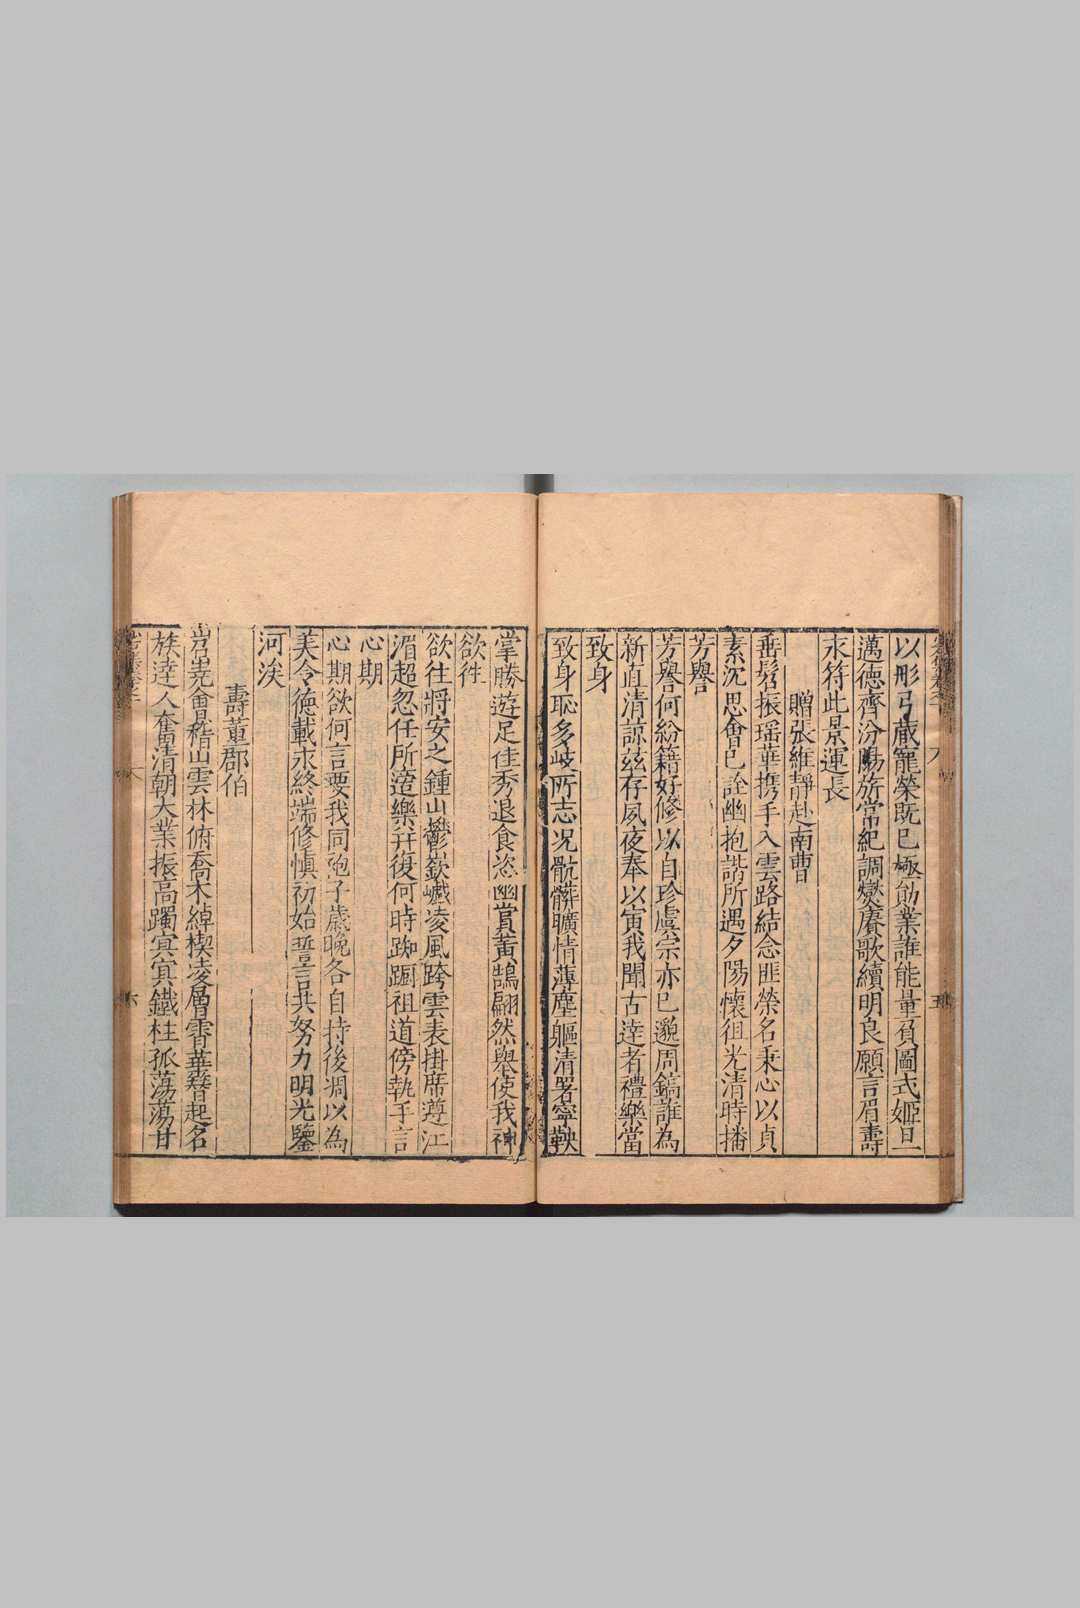 以彤弓蕆寵榮既已極勛業誰能量負圖式姬旦一
邁德齊汾陽旂常紀調燮賡歌續明良願言眉壽
永符此景運長
贈張維靜赴南曹
垂髫振瑶華携手入雲路結念匪榮名秉心以貞
素沉思會已詮幽抱諧所遇夕陽懷徂光清時播
芳譽
芳譽何紛籍好修以自珍虞宗亦已邈周鎬誰為
新直清諒茲存夙夜奉以寅我聞古達者禮樂當
致身
致身恥多岐所志况骯髒曠情薄塵軀清署寧鞅
掌勝遊足佳秀退食恣幽賞黃鵠翩然舉使我神
欲往
欲往將安之鍾山鬱嶔巇凌風跨雲表掛席遵江
湄超忽任所遼樂幷復何時踟蹰祖道傍執手言
心期
心期欲何言要我同孢子歲晚各自持後凋以為
美令德載永終端修慎初始誓言共努力明光鑒
河涘
壽董郡伯
岧嶤會稽山雲林俯喬木綽楔凌層霄華簪起名
族達人奮清朝大業振高躅冥冥鐵柱孤蕩蕩甘
六
五